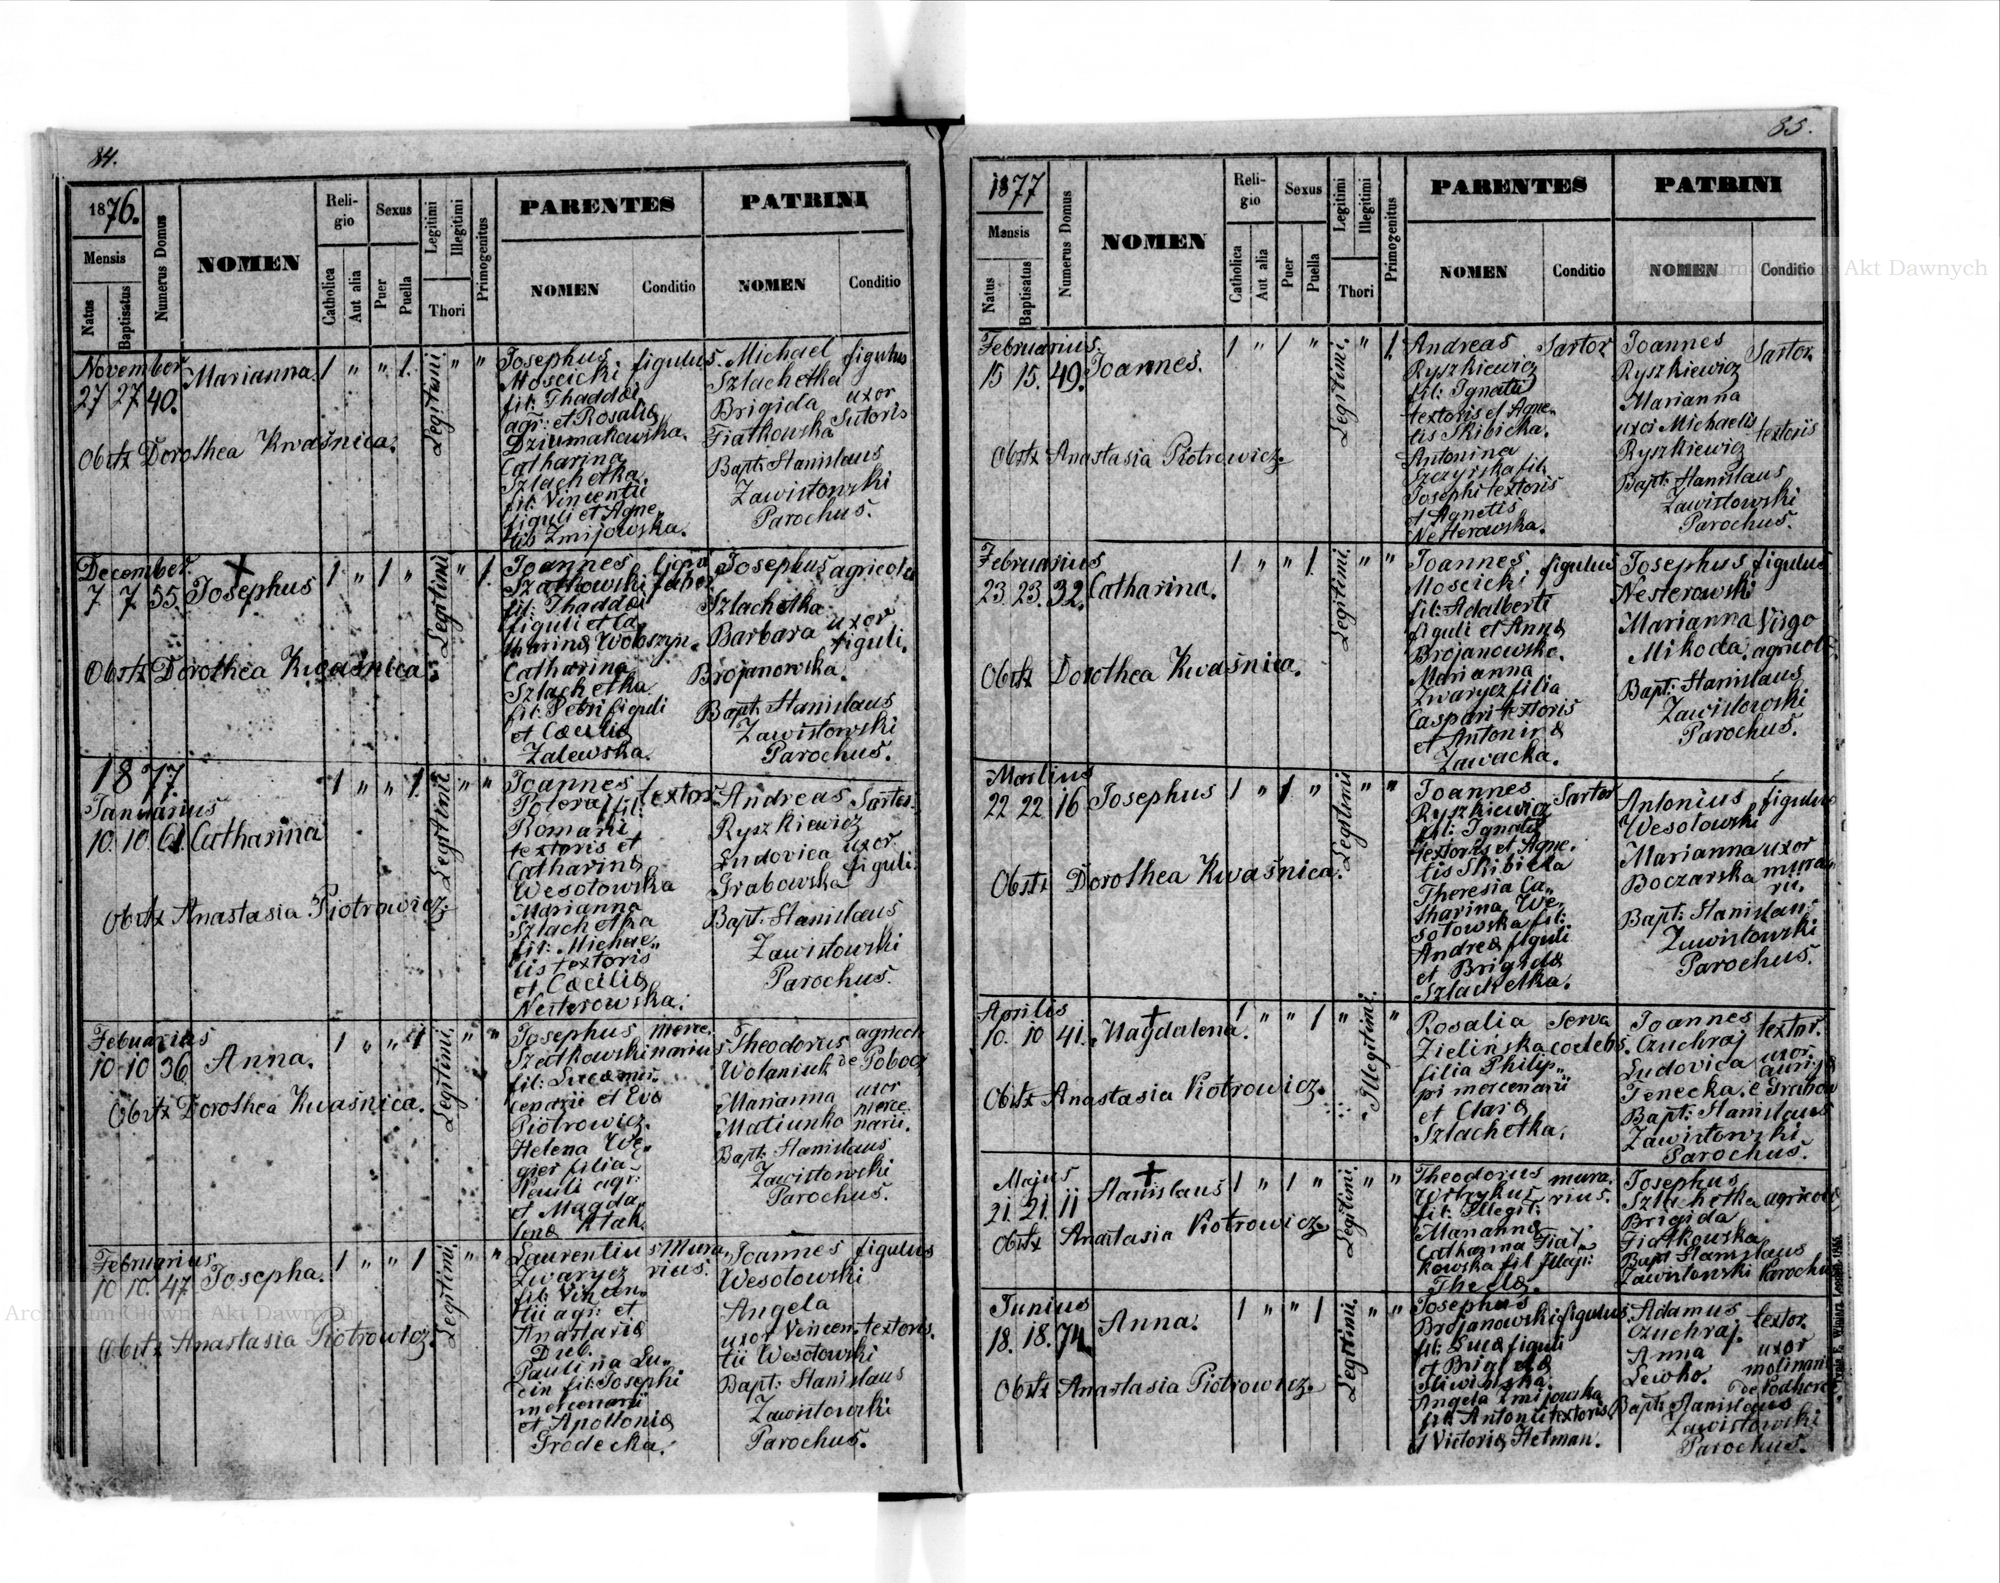 84.
1876.
Mensis
Natus
Baptisatus
Numerus Domus
NOMEN
Religio
Catholica
Aut alia
Sexus
Puer
Puella
Legitimi
Illegitimi
Thori
Primogenitus
PARENTES
NOMEN
Conditio
PATRINI
NOMEN
Conditio
November
27 27 40. Marianna. 1 " " 1. Legitimi. " "
Obstz Dorothea Kwaśnica.
Josephus figulus.
Moscicki
fil: Thaddæi
agr: et Rosaliæ
Dziumakowska.
Catharina
Szlachetka.
fil: Vincentii
figuli et Agne„
tis Zmijowska.
Michael figulus
Szlachetka
Brigida uxor
Fiałkowska Sutoris
Bapt: Stanislaus
Zawistowski
Parochus.
December.
7 7 55. Josephus 1 " 1 " Legitimi " 1.
Obstz Dorothea Kwaśnica.
Joannes
Szatkowski faber
fil: Thaddæi
figuli et Ca„
tharinæ Wobszyn„
Catharina
Szlachetka
fil: Petri figuli
et Cæciliæ
Zalewska.
Josephus agricola
Szlachetka
Barbara uxor
figuli.
Brojanowska.
Bapt: Stanislaus
Zawistowski
Parochus.
1877.
Januarius
10. 10. 61. Catharina 1 " " 1. Legitimi " "
Obstz Anastasia Piotrowicz.
Joannes textor.
fil:
Romani
textoris et
Catharinæ
Wesołowska
Marianna
Szlachetka
fil: Michae„
lis textoris
et Cæciliæ
Nesterowska.
Andreas Sartor.
Ryszkiewicz
Ludovica uxor
Grabowska figuli.
Bapt: Stanislaus
Zawistowski
Parochus.
Februarius
10 10 36. Anna. 1 " " 1 Legitimi. " "
Obstz Dorothea Kwaśnica.
Josephus merce„
Szatkowski narius
fil: Lucæ mer„
cenarii et Evæ
Piotrowicz.
Helena We„
gier filia
Pauli agr:
et Magda„
lenæ Ptak.
Theodorus agricola
Wolaniuk de Pobocz
Marianna uxor
Matiunko merce„
narii.
Bapt: Stanislaus
Zawistowski
Parochus.
Februarius.
10 10. 47. Josepha. 1 " " 1 Legitimi. " "
Obstz Anastasia Piotrowicz.
Laurentius Mura„
Zwarycz rius.
fil: Vincen„
tii agr: et
Anastasiæ
Dreb.
Paulina Lu„
cin fil: Josephi
mercenarii
et Apolloniæ
Grodecka.
Joannes figulus
Wesołowski
Angela
uxor Vincen„ textoris.
tii Wesołowski
Bapt: Stanislaus
Zawistowski
Parochus.
85.
1877
Mensis
Natus
Baptisatus
Numerus Domus
NOMEN
Religio
Catholica
Aut alia
Sexus
Puer
Puella
Legitimi
Illegitimi
Thori
Primogenitus
PARENTES
NOMEN
Conditio
PATRINI
NOMEN
Conditio
Februarius.
15 15. 49. Joannes. 1 " 1 " Legitimi. " 1.
Obstz Anastasia Piotrowicz.
Andreas Sartor
Ryszkiewicz
fil: Ignatii
textoris et Agne„
tis Skibicka.
Antonina
Szczyrska fil:
Josephi textoris
et Agnetis
Nesterowska.
Joannes Sartor.
Ryszkiewicz
Marianna
uxor Michaelis textoris
Ryszkiewicz
Bapt: Stanislaus
Zawistowski
Parochus.
Februarius
23. 23. 32. Catharina. 1 " " 1. Legitimi. " "
Obstz Dorothea Kwaśnica.
Joannes figulus
Moscicki
fil: Adalberti
figuli et Annæ
Brojanowska.
Marianna
Zwarycz filia
Caspari textoris
et Antoninæ
Zawacka.
Josephus figulus
Nesterowski
Marianna Virgo
Mikoda. agricolæ
Bapt: Stanislaus
Zawistowski
Parochus.
Martius
22 22 16 Josephus 1 " 1 " Legitimi " "
Obstz Dorothea Kwaśnica.
Joannes
Ryszkiewicz Sartor
fil: Ignatii
textoris et Agne„
tis Skibicka
Theresia Ca„
tharina We„
sołowska fil:
Andreæ figuli
et Brigidæ
Szlachetka.
Antonius figulus
Wesołowski
Marianna uxor
Boczarska mura„
rii.
Bapt: Stanislaus
Zawistowski
Parochus.
Aprilis
10. 10 41. Magdalena. 1 " " 1 " Illegitimi. "
Obstz Anastasia Piotrowicz.
Rosalia Serva
Zielińska coelebs.
filia Philip„
pi mercenarii
et Claræ
Szlachetka.
Joannes textor.
Czuchraj
Ludovica uxor
aurigæ
Jenecka. e Grabow
Bapt: Stanislaus
Zawistowski
Parochus.
Majus
21. 21. 11 Stanislaus 1 " 1 " Legitimi. " "
Obstz Anastasia Piotrowicz.
Theodorus mura„
Witrykus rius.
fil: Illegit:
Mariannæ
Catharina Fiał„
kowska fil Illegi:
Theclæ.
Josephus
Szlachetka agricola
Brigida
Fiałkowska
Bapt Stanislaus
Zawistowski Parochus
Junius
18. 18. 74. Anna. 1 " " 1 Legitimi. " "
Obstz Anastasia Piotrowicz.
Josephus
Brojanowski figulus
fil: Lucæ figuli
et Brigidæ
Sliwinska.
Angela Zmijowska
fil: Antonii textoris
et Victoriæ Hetman.
Adamus textor.
Czuchraj.
Anna uxor
Lewko. molinarii
de Podhorce
Bapt: Stanislaus
Zawistowski
Parochus.
Archiwum Główne Akt Dawnych
Archiwum Główne Akt Dawnych